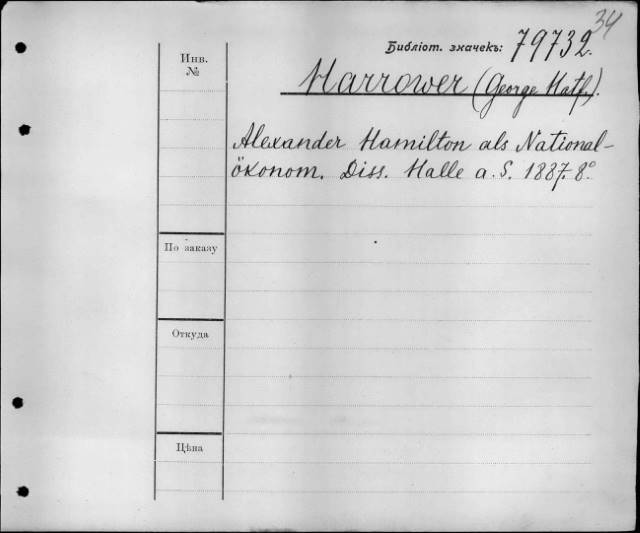 34
Библіот. значекъ: 79732.
Инв.
№
Harrower (George Hatf.).
Alexander Hamilton als National-
ökonom. Diss. Halle a. S. 1887. 8°
По заказу
Откуда
Цѣна